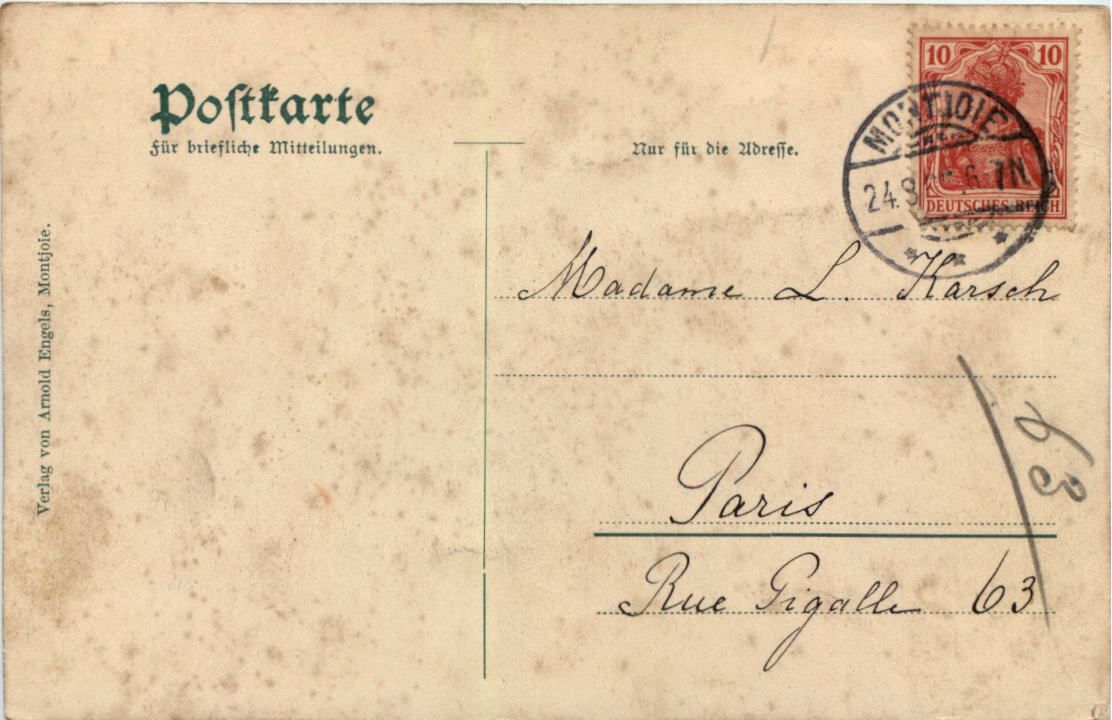 Postkarte
Für briefliche Mitteilungen.
Nur für die Adresse.
10 10
DEUTSCHES REICH
MONTJOIE
24.9. 6-7N.
Madame L. Karsch
Paris
Rue Pigalle 63
63
Verlag von Arnold Engels, Montjoie.